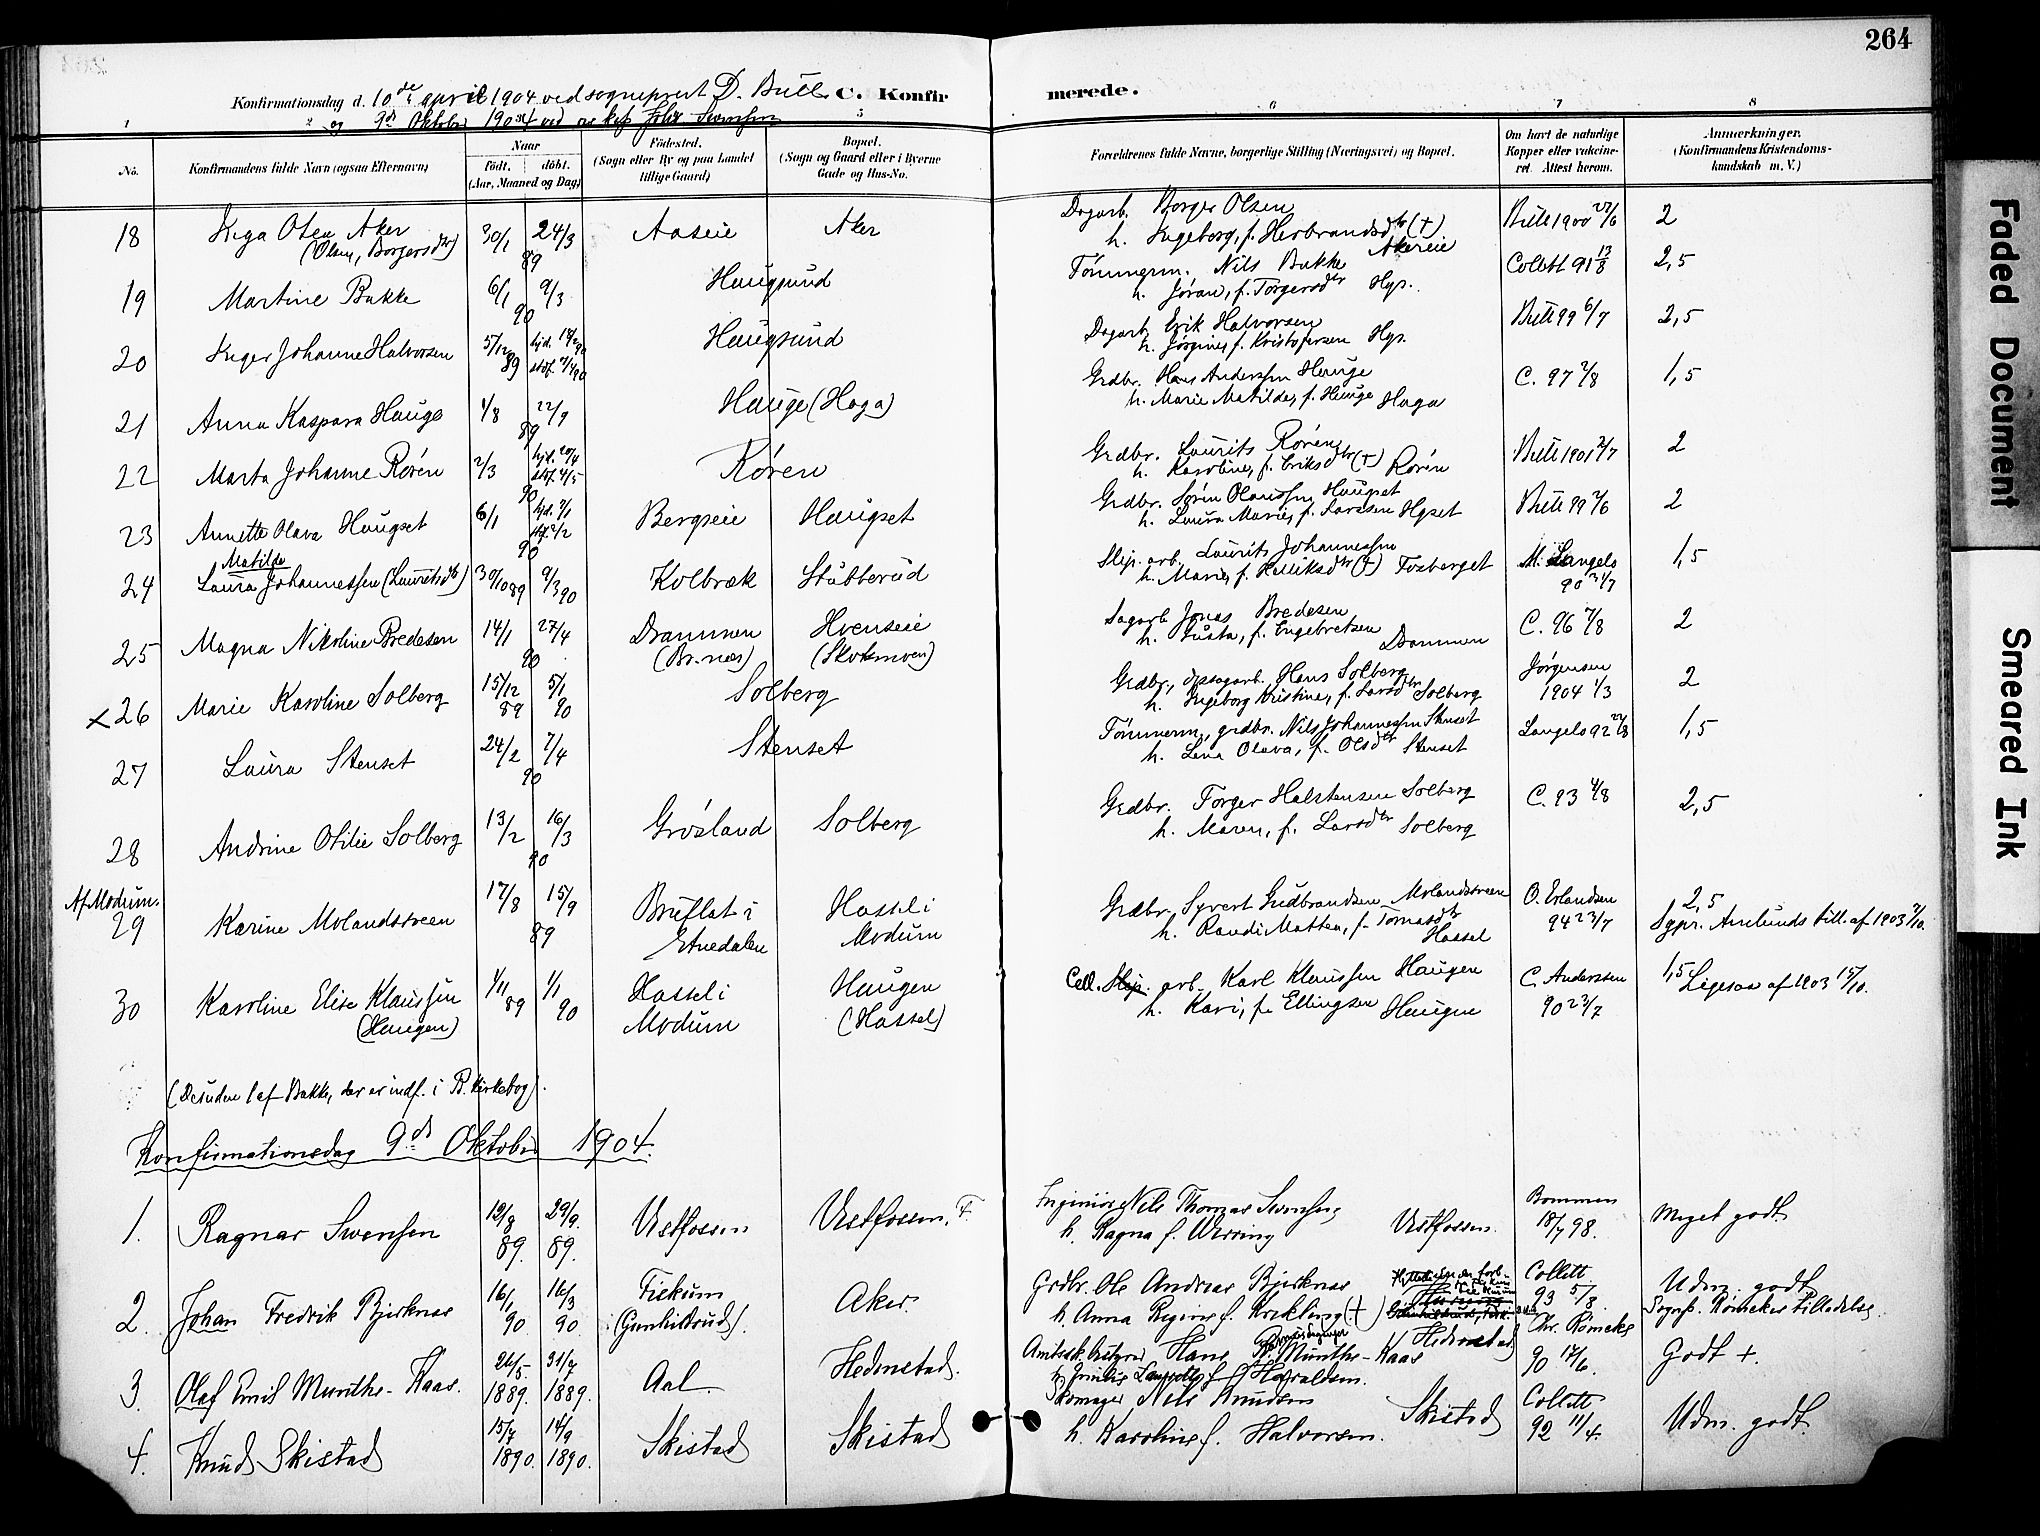 264
Konfirmationsdag d. 10de april 1904 ved sogneprest D. Bull. C. Konfirmerede.
og 9de Oktober 1904 ved
1 2 5 6 7 8
No. Konfirmandens fulde Navn (ogsaa Efternavn) Naar født. døbt. (Aar, Maaned og Dag) Fødested. (Sogn eller By og paa Landet tillige Gaard) Bopæl. (Sogn og Gaard eller i Byerne Gade og Hus-No. Forældrenes fulde Navne, borgerlige Stilling (Næringsvei) og Bopæl. Om havt de naturlige Kopper eller vakcineret. Attest herom. Anmerkninger. (Konfirmandens Kristendomskundskab m. V.)
18 Inga Olsen Aker (Olsen, Borgersdtr) 30/1 24/3 89 Aaseie Aker Dagarb. Borger Olsen h. Ingeborg, f. Herbrandsdtr (+) Akereie Bull 1900 27/6 2
19 Martine Bakke 6/1 9/3 90 Haugsund Tømmerm. Nils Bakke h. Jøran, f. Torgersdtr Hgs. Collett 91 13/8 2,5
20 Inger Johanne Halvorsen 5/12 89 Haugsund Dagarb. Erik Halvorsen h. Jørgine, f. Kristofersen Hgs. Bull 99 6/7 2,5
21 Anna Kaspara Hauge 1/8 22/9 89 Hauge (Haga) Grdbr. Hans Anderssen Hauge h. Marie Matilde, f. Hauge Haga C. 97 2/8 1,5
22 Marta Johanne Røren 2/3 hjd. 20/4 stdf. 4/5 90 Røren Grdbr. Laurits Røren h. Karoline, f. Eriksdtr (+) Røren Bull 1901 2/7 2
23 Annette Olava Haugset 6/1 hjd. 7/1 stdf. 2/2 90 Bergseie Haugset Grdbr. Søren Olaussen Haugset h. Laura Marie, f. Larssen Hgset Bull 99 7/6 2
24 Laura Matilde Johannessen (Lauritsdtr) 30/10 89 9/3 90 Kolbræk Stubberud Slip. arb. Laurits Johannessen h. Marie, f. (+) Fosberget M. Langels 90 31/7 1,5
25 Magna Nikoline Bredesen 14/1 27/4 90 Drammen (Br.nes) Hvenseie (Skotsmoen) Sagarb. Jonas Bredesen h. Gusta, f. Engebretsen Drammen C. 96 7/8 2
x 26 Marie Karoline Solberg 15/12 89 5/1 90 Solberg Grdbr., opsagarb. Hans Solberg h. Ingeborg Kristine, f. Larsdtr Solberg Jørgensen 1904 1/3 2
27 Laura Stenset 24/2 7/4 90 Stenset Tømmerm., grdbr. Nils Johannessen Stenset h. Lena Olava, f. Olsdtr Stenset Langels 92 22/8 1,5
28 Andrine Otilie Solberg 13/2 16/3 90 Grøsland Solberg Grdbr. Torger Halstensen Solberg h. Maren, f. Larsdtr Solberg C. 93 4/8 2,5
Af Modum. 29 Karine Molandsveen 17/8 15/9 89 Bruflat i Etnedalen Hassel i Modum Grdbr. Syvert Gudbrandsen Molandsveen h. Randi Matten, f. Tomasdtr Hassel O. Erlandsen 94 23/7 2,5 Sgpr. Amlunds till. af 1903 7/10.
30 Karoline Elise Klaussen (Haugen) 1/11 89 1/1 90 Hassel i Modum Haugen (Hassel) Cell. Slip. arb. Karl Klaussen Haugen h. Kari, f. Ellingsen Haugen C. Anderssen 90 23/7 1,5 Ligesaa af 1903 15/10.
(Desuden 1 af Bakke, der er indf. i B. kirkebog).
Konfirmationsdag 9de Oktober 1904.
1. Ragnar Svensen 12/8 89. 29/9. 89. Vestfossen Vestfossen. F. Ingeniør Nils Thomas Svensen h. Ragna f. Wirring Vestfossen. Bommen 18/7 98. Meget godt
2. Johan Fredrik Bjerknes 16/1 90 16/3 90 Fiskum (Gunhildrud). Aker. Grdbr. Ole Andreas Bjerknes h. Anna Regine f. Krekling (+) Collett 93 5/8. Udm. godt Sognp. Rømckes Tilladelse
3. Olaf Emil Munthe-Kaas. 26/5. 1889. 31/7 1889. Aal. Hedenstad. Amtssk.bestyrer Hans Munthe-Kaas f. Haraldsen. Hedenstad Chr. Rømcke 90 17/6 Godt +.
4. Knud Skistad 15/7 1890. 14/9 1890. Skistad Skistad Skomager Nils Knudsen h. Karoline f. Halvorsen. Skistad Collett 92 11/4. Udm. godt.
Faded Document
Smeared Ink